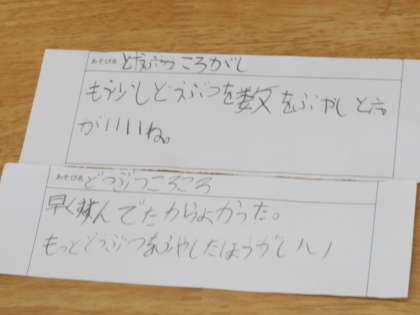 あそび名 どうぶつころがし
もう少しどうぶつを数をふやしと方
がいいね。
あそび名 どうぶつころころ
早く並んでたからよかった。
もっとどうぶつをふやしたほうがいい